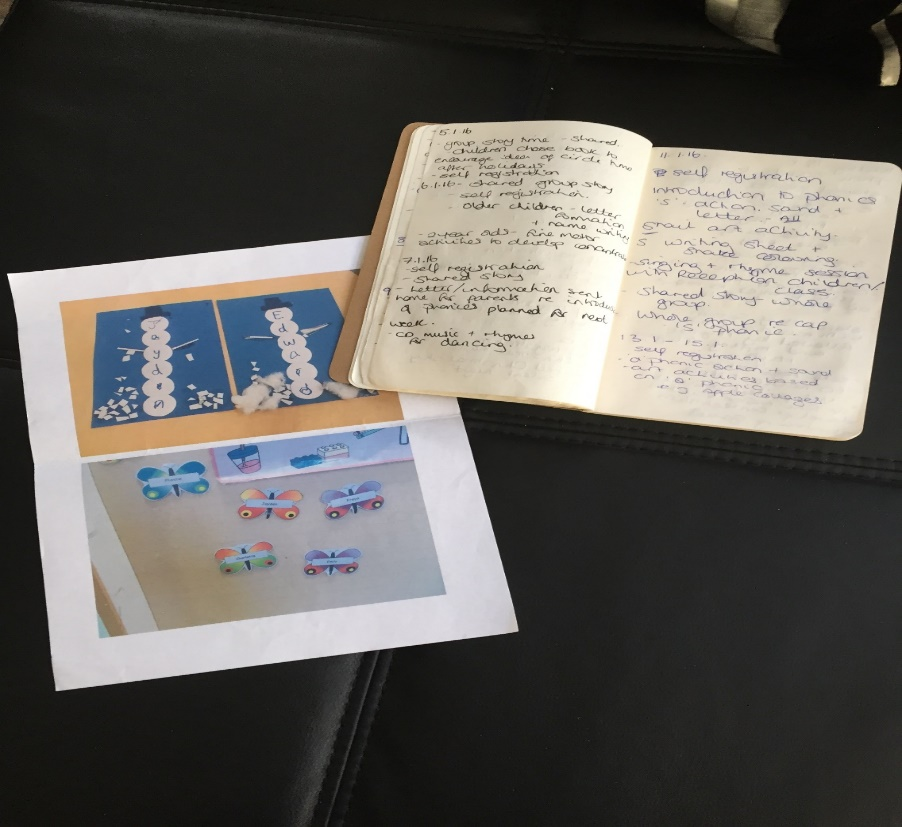 - 5.1.16
- group story time - shared.
children choose book to
encourage idea of circle time
after holidays
- self registration
6.1.16 - shared group story
- self registration.
- older children - letter
formation
+ name writing
- 2 year olds - fine motor
activities to develop
7.1.16
- self registration
- Shared story
- Letter/information sent
home for parents re
of phonics planned for next
week.
- CD music + rhymes
for dancing.
11.1.16.
self registration
introduction to phonics
's' action. sound +
letter - All
Snail art activity.
S writing sheet +
snake colouring.
- singing + rhyme session
with Reception children/
class.
- Shared story - whole
group.
Whole group re cap
's' phonic
13.1 - 15.1.
self registration
a phonic action + sound
- art activities based
on 'a' phonic
apple collages.
Jayden
Edward